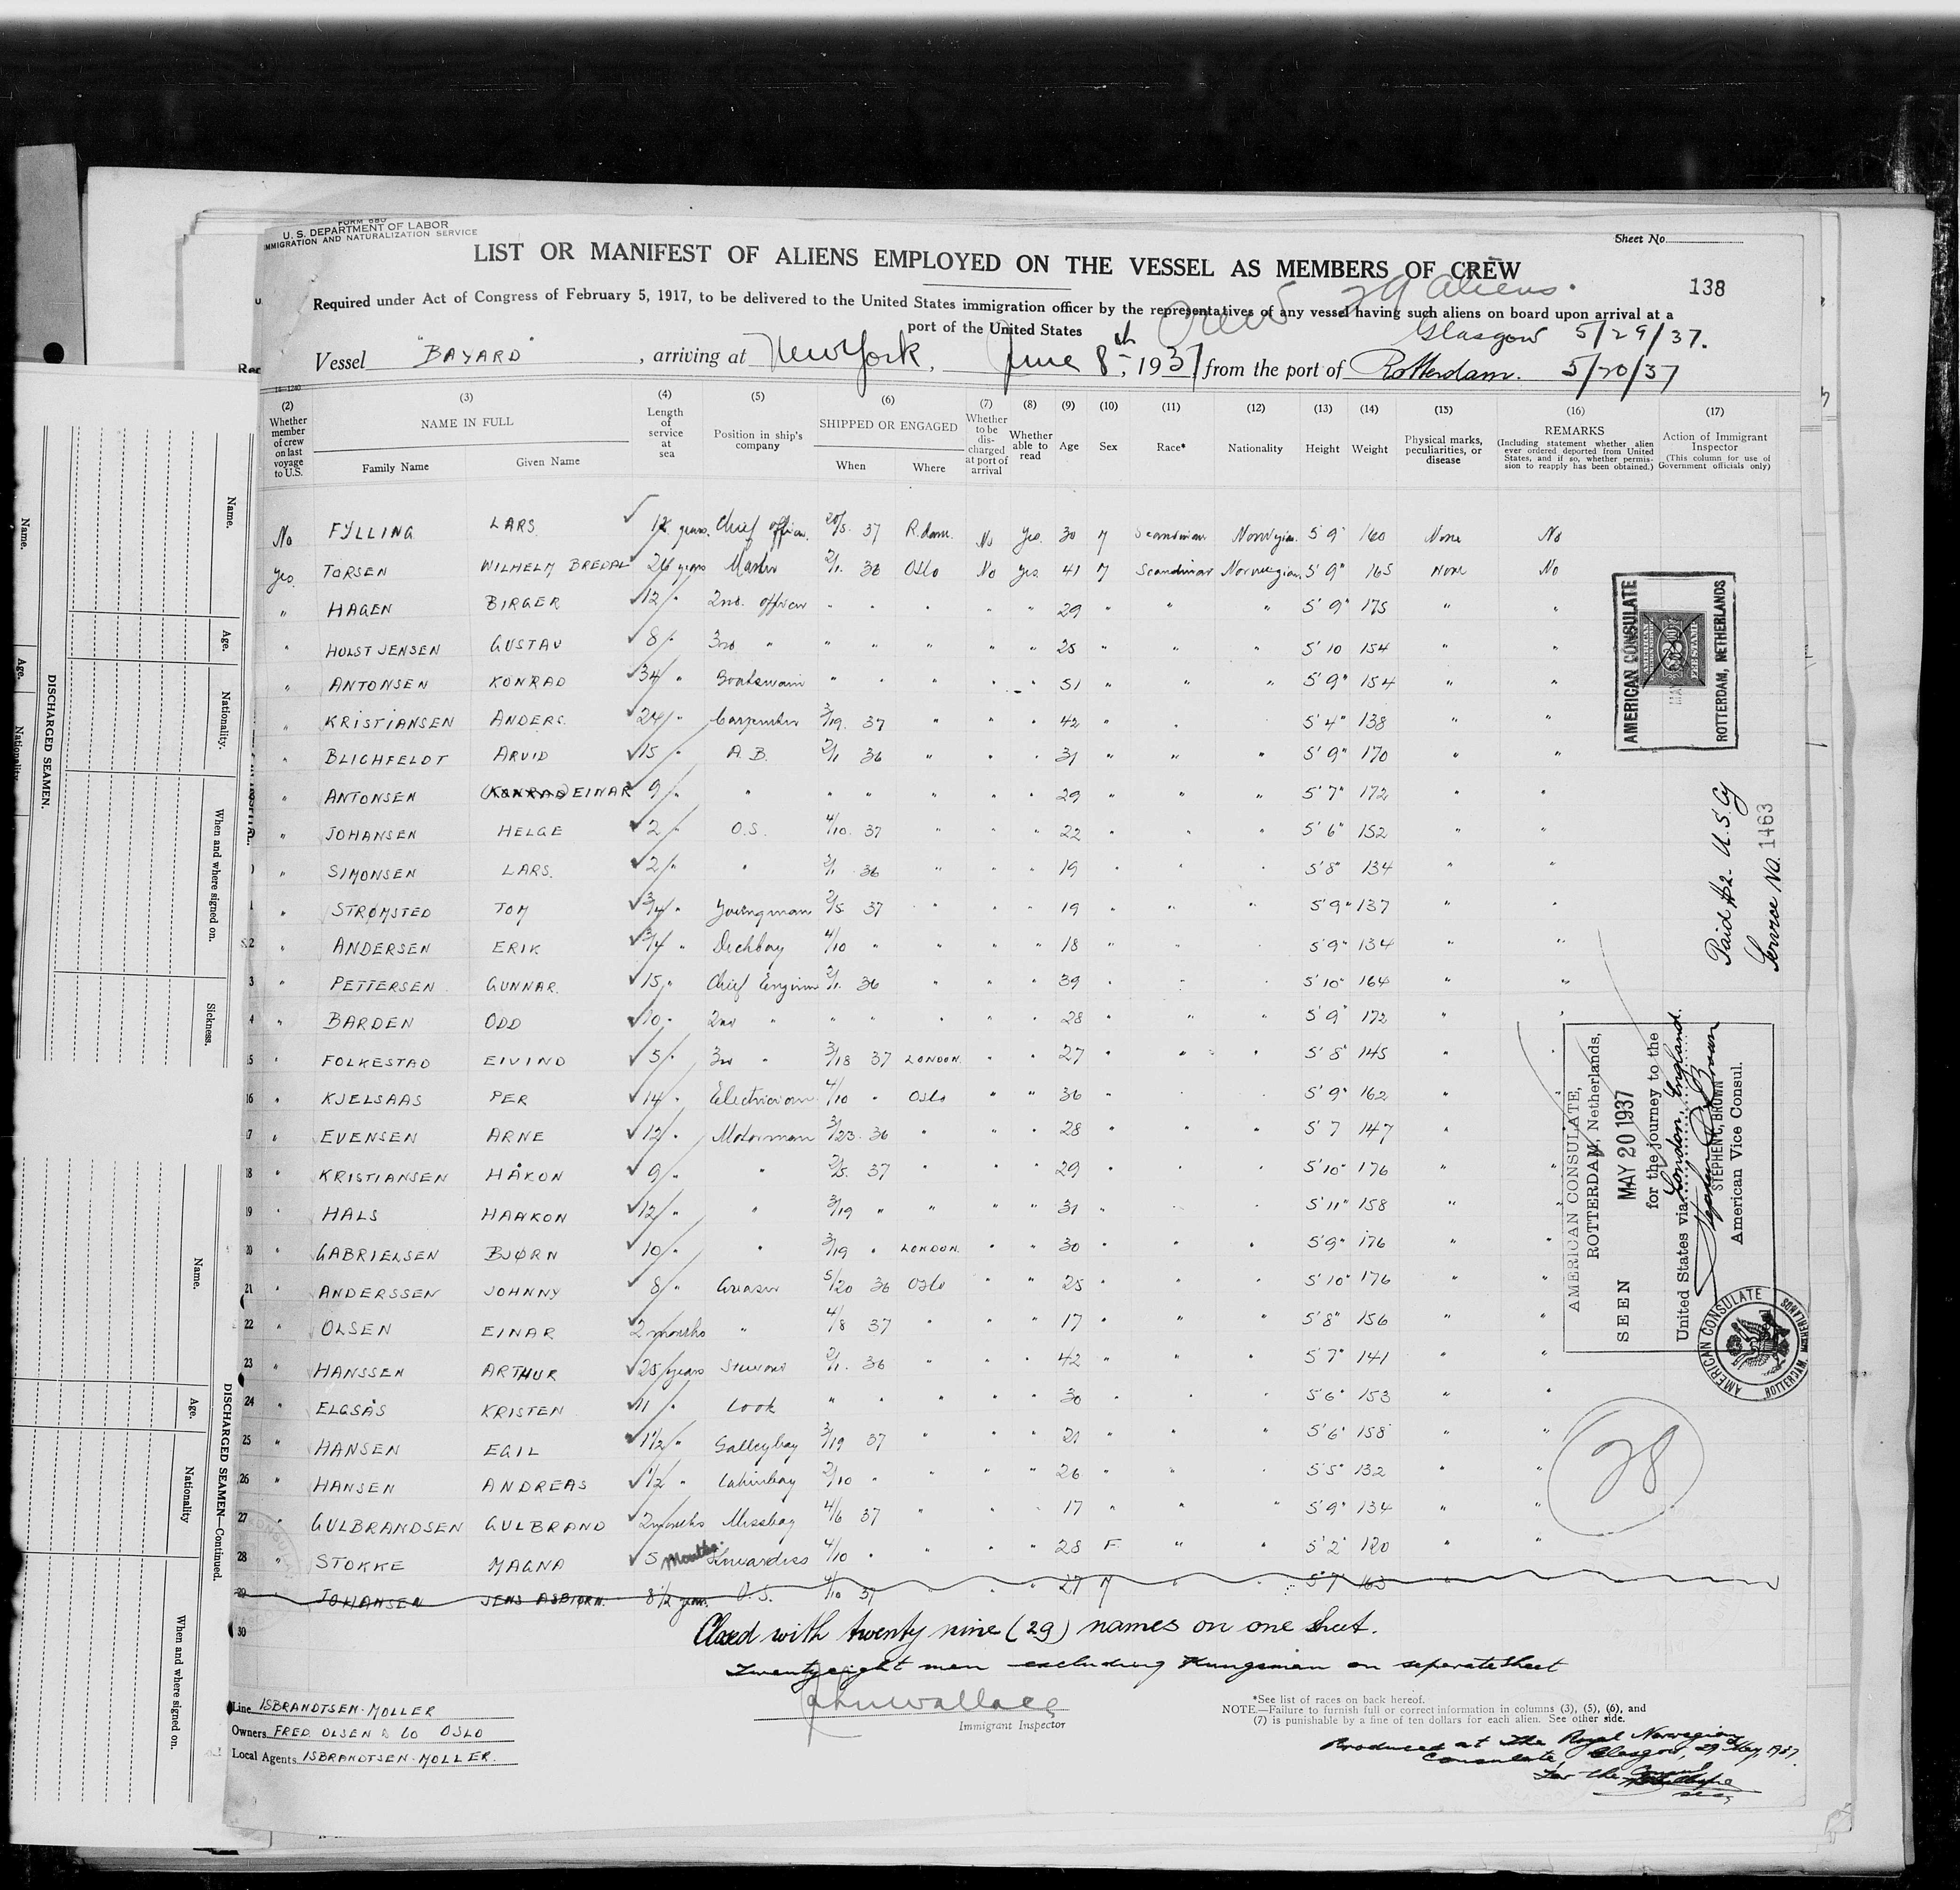 FORM 680
U. S. DEPARTMENT OF LABOR
IMMIGRATION AND NATURALIZATION SERVICE
Sheet No.
LIST OR MANIFEST OF ALIENS EMPLOYED ON THE VESSEL AS MEMBERS OF CREW
138
Required under Act of Congress of February 5, 1917, to be delivered to the United States immigration officer by the representatives of any vessel having such aliens on board upon arrival at a
port of the United States
Crew 29 Aliens.
Glasgow 5/29/37.
Vessel "BAYARD", arriving at New York, June 8th, 1937 from the port of Rotterdam. 5/20/37
14—1240
(2) Whether member of crew on last voyage to U.S.
(3) NAME IN FULL
Family Name
Given Name
(4) Length of service at sea
(5) Position in ship's company
(6) SHIPPED OR ENGAGED
When
Where
(7) Whether to be discharged at port of arrival
(8) Whether able to read
(9) Age
(10) Sex
(11) Race*
(12) Nationality
(13) Height
(14) Weight
(15) Physical marks, peculiarities, or disease
(16) REMARKS
(Including statement whether alien ever ordered deported from United States, and if so, whether permission to reapply has been obtained.)
(17) Action of Immigrant Inspector
(This column for use of Government officials only)
No FYLLING LARS years. Chief officer. 20/5 37 R.dam. No Yes. 30 M Scandinav Norwegian 5'9" 160 None No
Yes. TORSEN WILHELM BREDAL 26 years Master 2/1. 36 Oslo No Yes. 41 M Scandinav Norwegian 5'9" 165 None No
" HAGEN BIRGER 12 " 2nd. officer " " " " " 29 " " " 5'9" 175 " "
" HOLST JENSEN GUSTAV 8 " 3rd " " " " " " 25 " " " 5'10 154 " "
" ANTONSEN KONRAD 34 " Boatswain " " " " " 51 " " " 5'9" 154 " "
" KRISTIANSEN ANDERS. 24 " Carpenter 3/19. 37 " " " 42 " " " 5'4" 138 " "
" BLICHFELDT ARVID 15 " A.B. 2/1 36 " " " 31 " " " 5'9" 170 " "
" ANTONSEN (KONRAD) EINAR 9 " " " " " " " 29 " " " 5'7" 172 " "
" JOHANSEN HELGE 2 " O.S. 4/10. 37 " " " 22 " " " 5'6" 152 " "
" SIMONSEN LARS. 2 " " 2/1 36 " " " 19 " " " 5'8" 134 " "
" STRØMSTED TOM 3/4 " Youngman 2/5 37 " " " 19 " " " 5'9" 137 " "
" ANDERSEN ERIK 3/4 " Deckboy 4/10 " " " " 18 " " " 5'9" 134 " "
" PETTERSEN GUNNAR. 15 " Chief Engineer 2/1. 36 " " " 39 " " " 5'10" 164 " "
" BARDEN ODD 10 " 2nd " " " " " " 28 " " " 5'9" 172 " "
" FOLKESTAD EIVIND 5 " 3rd " 3/18 37 LONDON. " " 27 " " " 5'8" 145 " "
16 " KJELSAAS PER 14 " Electrician 4/10 " Oslo " " 36 " " " 5'9" 162 " "
17 " EVENSEN ARNE 12 " Motorman 3/23. 36 " " " 28 " " " 5'7 147 " "
18 " KRISTIANSEN HÅKON 9 " " 2/5. 37 " " " 29 " " " 5'10" 176 " "
19 " HALS HAAKON 12 " " 3/19 " " " " 31 " " " 5'11" 158 " "
20 " GABRIELSEN BJØRN 10 " " 3/19 " LONDON. " " 30 " " " 5'9" 176 " "
21 " ANDERSSEN JOHNNY 8 " Greaser 5/20 36 Oslo " " 25 " " " 5'10" 176 " "
22 " OLSEN EINAR 2 months " 4/8 37 " " " 17 " " " 5'8" 156 " "
23 " HANSSEN ARTHUR 25 years Steward 2/1. 36 " " " 42 " " " 5'7" 141 " "
24 " ELGSÅS KRISTEN 11 " Cook " " " " " 30 " " " 5'6" 153 " "
25 " HANSEN EGIL 1 1/2 " Galleyboy 3/19 37 " " " 21 " " " 5'6" 158 " "
26 " HANSEN ANDREAS 1/2 " Cabinboy 2/10 " " " " 26 " " " 5'5" 132 " "
27 " GULBRANDSEN GULBRAND 2 months Messboy 4/6 37 " " " 17 " " " 5'9" 134 " "
28 " STOKKE MAGNA 5 Months. Stewardess 4/10 " " " " 28 F " " 5'2" 120 " "
29 JOHANSEN JENS ASBJØRN. 8 1/2 years O.S. 4/10 37 " " " 27 M " " 5'7" 163 "
30
Closed with twenty nine (29) names on one sheet.
Twenty eight men excluding on separate sheet
John Wallace
Immigrant Inspector
Line ISBRANDTSEN-MOLLER
Owners FRED. OLSEN & CO OSLO
Local Agents ISBRANDTSEN-MOLLER.
*See list of races on back hereof.
NOTE.—Failure to furnish full or correct information in columns (3), (5), (6), and
(7) is punishable by a fine of ten dollars for each alien. See other side.
Produced at the Royal Norwegian
Consulate, Glasgow, 29 May, 1937.
For the Consul
AMERICAN CONSULATE
ROTTERDAM, NETHERLANDS
Paid $2. U.S. Cy
Service No. 1463
AMERICAN CONSULATE,
ROTTERDAM, Netherlands,
SEEN MAY 20 1937
for the journey to the
United States via London, England.
STEPHEN C. BROWN
American Vice Consul.
AMERICAN CONSULATE
ROTTERDAM, NETHERLANDS
28
DISCHARGED SEAMEN.
Name.
Age.
Nationality.
When and where signed on.
Sickness.
DISCHARGED SEAMEN—Continued.
Name.
Age.
Nationality
When and where signed on.
Name.
Age.
Nationality